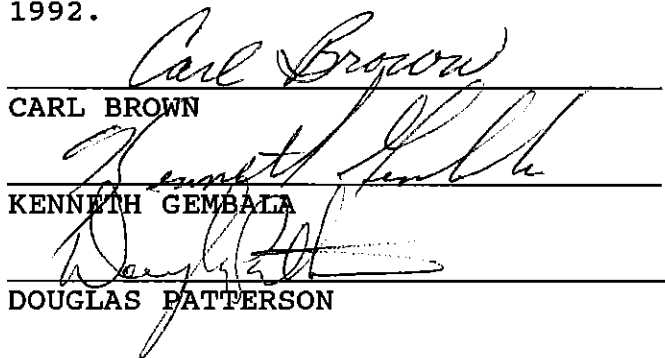 1992.
Carl Brown
CARL BROWN
Kenneth Gembala
KENNETH GEMBALA
Douglas Patt
DOUGLAS PATTERSON